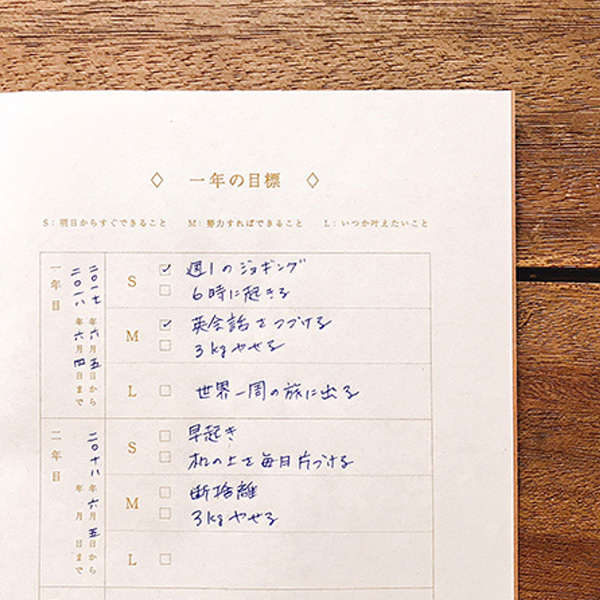 ◇ 一年の目標 ◇
S：明日からすぐできること M：努力すればできること L：いつか叶えたいこと
一年目
二〇一七年六月五日から
二〇一八年六月四日まで
S
週1のジョギング
6時に起きる
M
英会話をつづける
3kgやせる
L
世界一周の旅に出る
二年目
二〇十八年六月五日から
年 月 日まで
S
早起き
机の上を毎日片づける
M
断捨離
3kgやせる
L